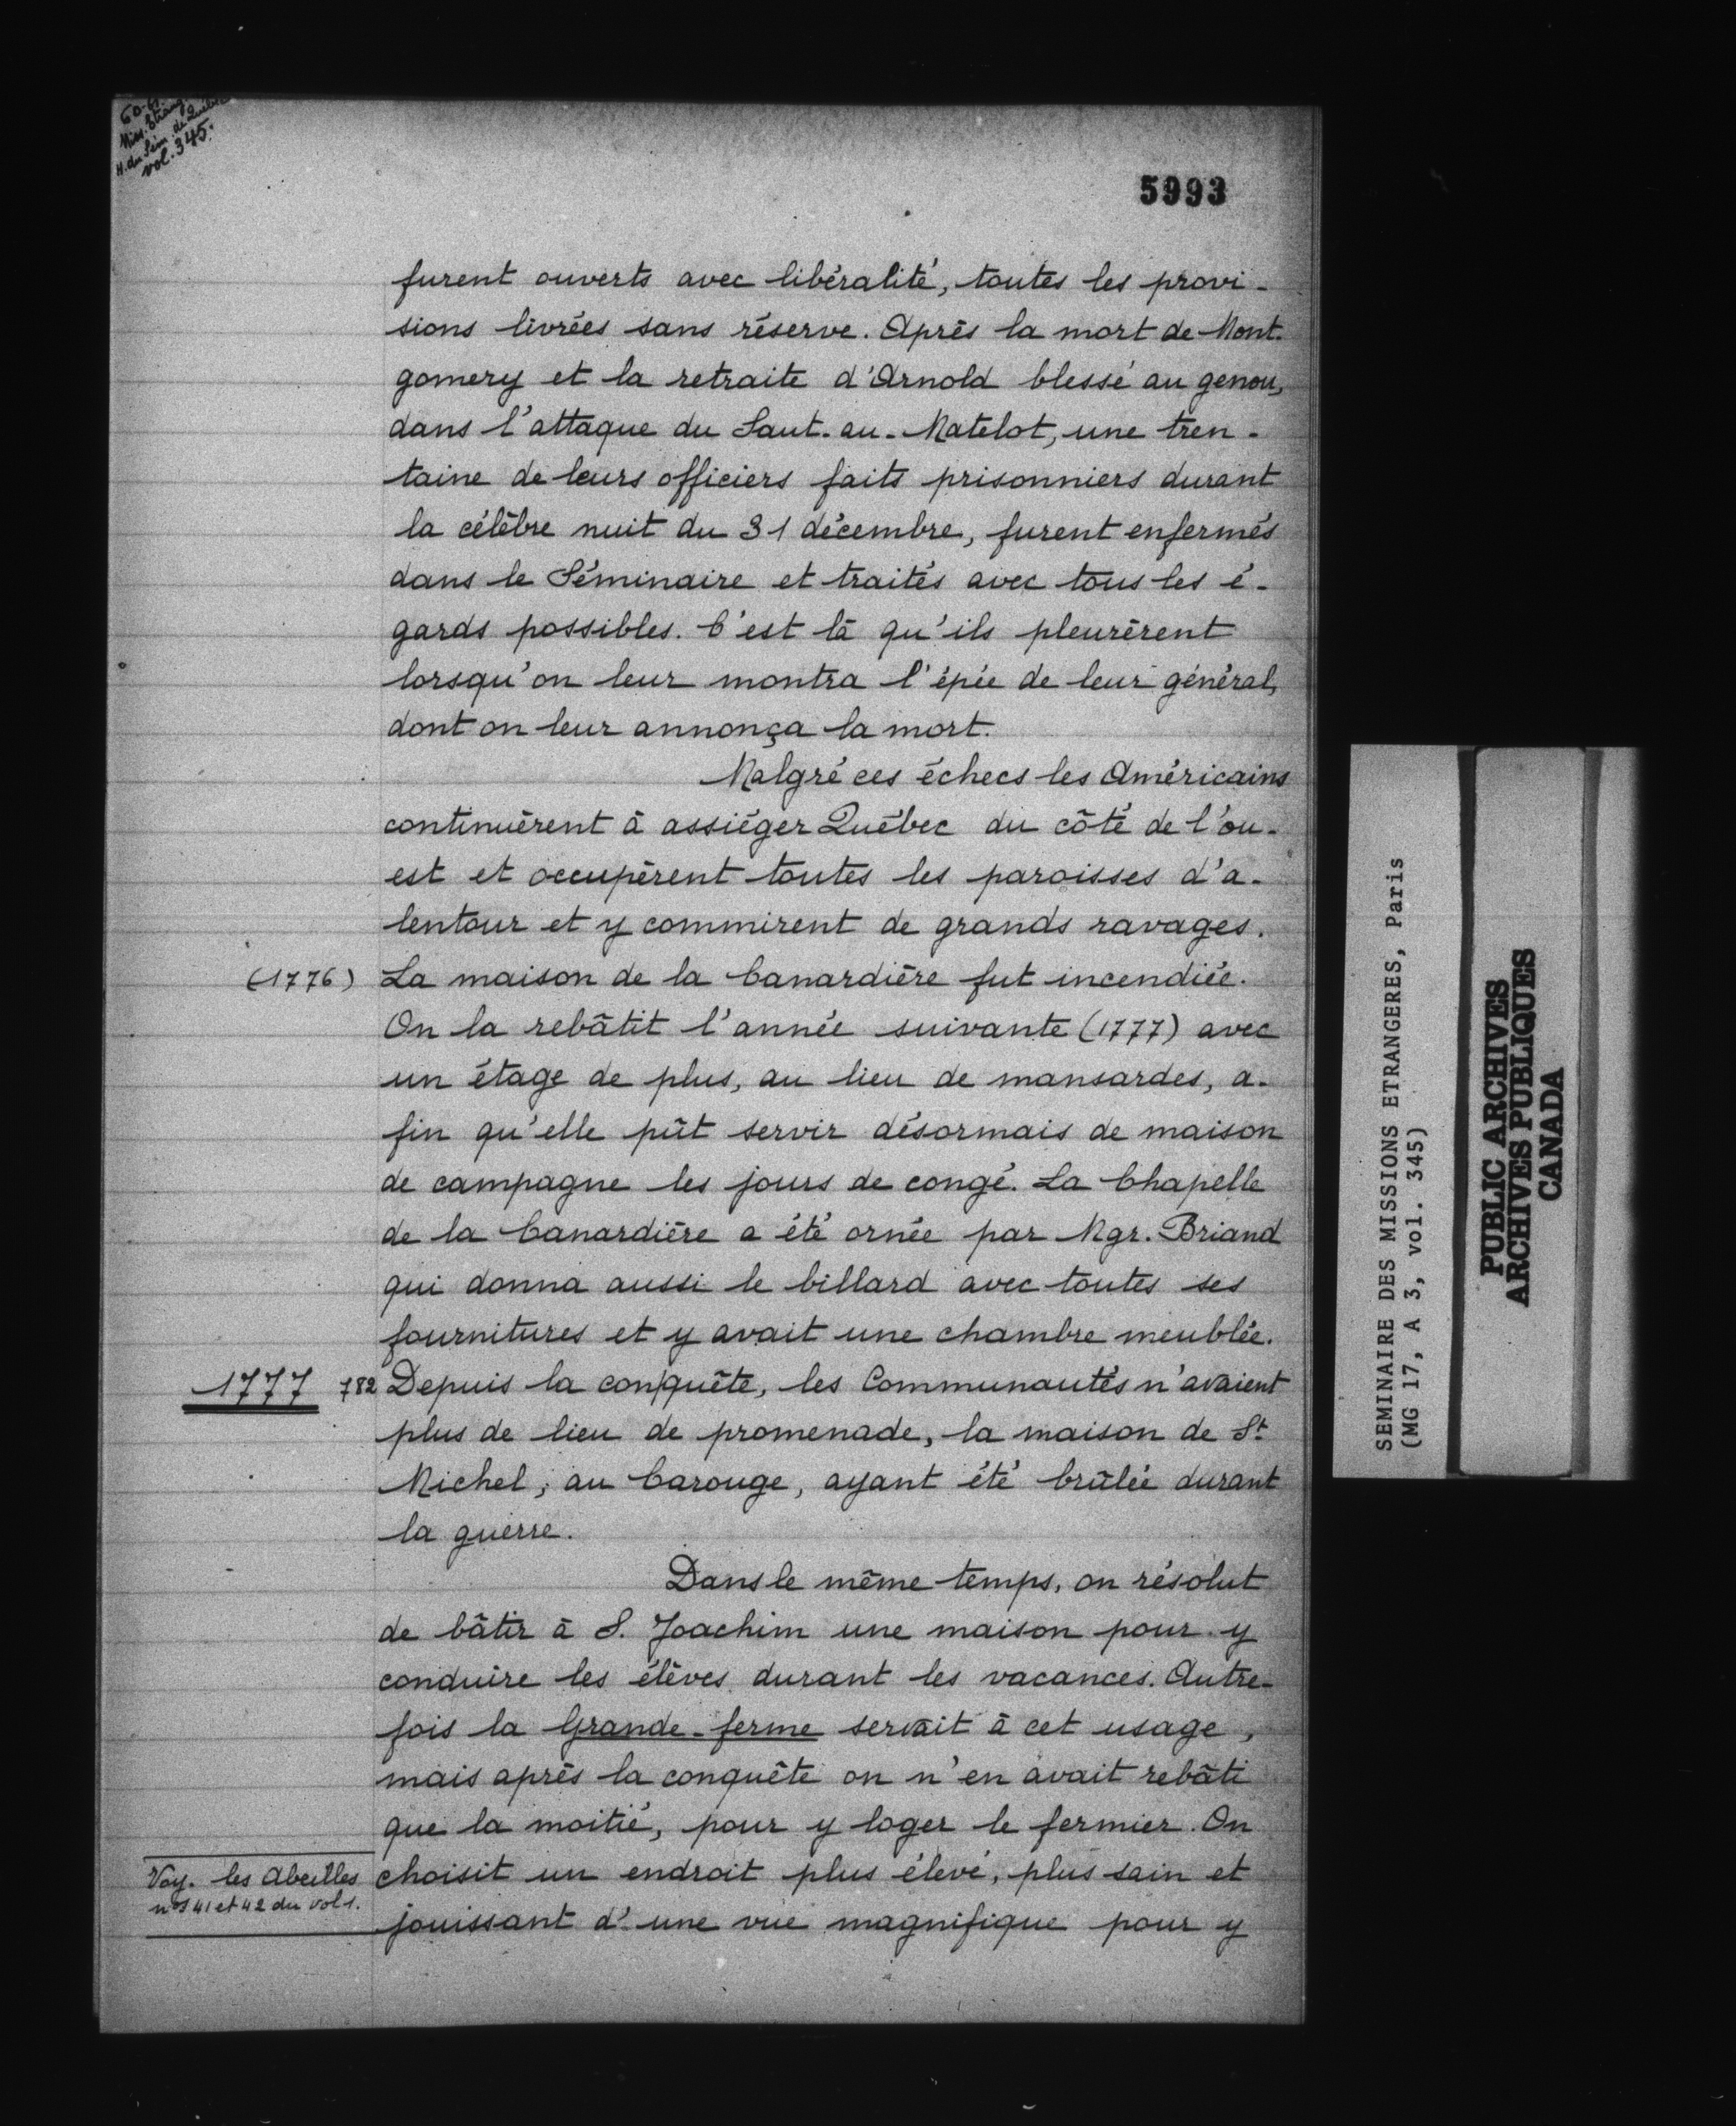 Miss. Étrang.
H. du Sém. de Québec
vol. 345.
5993
furent ouverts avec libéralité, toutes les provi-
sions livrées sans réserve. Après la mort de Mont-
gomery et la retraite d'Arnold blessé au genou,
dans l'attaque du Saut-au-Matelot, une tren-
taine de leurs officiers faits prisonniers durant
la célèbre nuit du 31 décembre, furent enfermés
dans le Séminaire et traités avec tous les é-
gards possibles. C'est là qu'ils pleurèrent
lorsqu'on leur montra l'épée de leur général,
dont on leur annonça la mort.
Malgré ces échecs les Américains
continuèrent à assiéger Québec du côté de l'ou-
est et occupèrent toutes les paroisses d'a-
lentour et y commirent de grands ravages.
(1776) La maison de la Canardière fut incendiée.
On la rebâtit l'année suivante (1777) avec
un étage de plus, au lieu de mansardes, a-
fin qu'elle pût servir désormais de maison
de campagne les jours de congé. La Chapelle
de la Canardière a été ornée par Mgr. Briand
qui donna aussi le billard avec toutes ses
fournitures et y avait une chambre meublée.
1777 782 Depuis la conquête, les Communautés n'avaient
plus de lieu de promenade, la maison de St
Michel, au Carouge, ayant été brûlée durant
la guerre.
Dans le même temps, on résolut
de bâtir à S. Joachim une maison pour y
conduire les élèves durant les vacances. Autre-
fois la Grande-ferme servait à cet usage,
mais après la conquête on n'en avait rebâti
que la moitié, pour y loger le fermier. On
Voy. les Abeilles
nos 41 et 42 du vol 1.
choisit un endroit plus élevé, plus sain et
jouissant d'une vue magnifique pour y
SEMINAIRE DES MISSIONS ETRANGERES, Paris
(MG 17, A 3, vol. 345)
PUBLIC ARCHIVES
ARCHIVES PUBLIQUES
CANADA